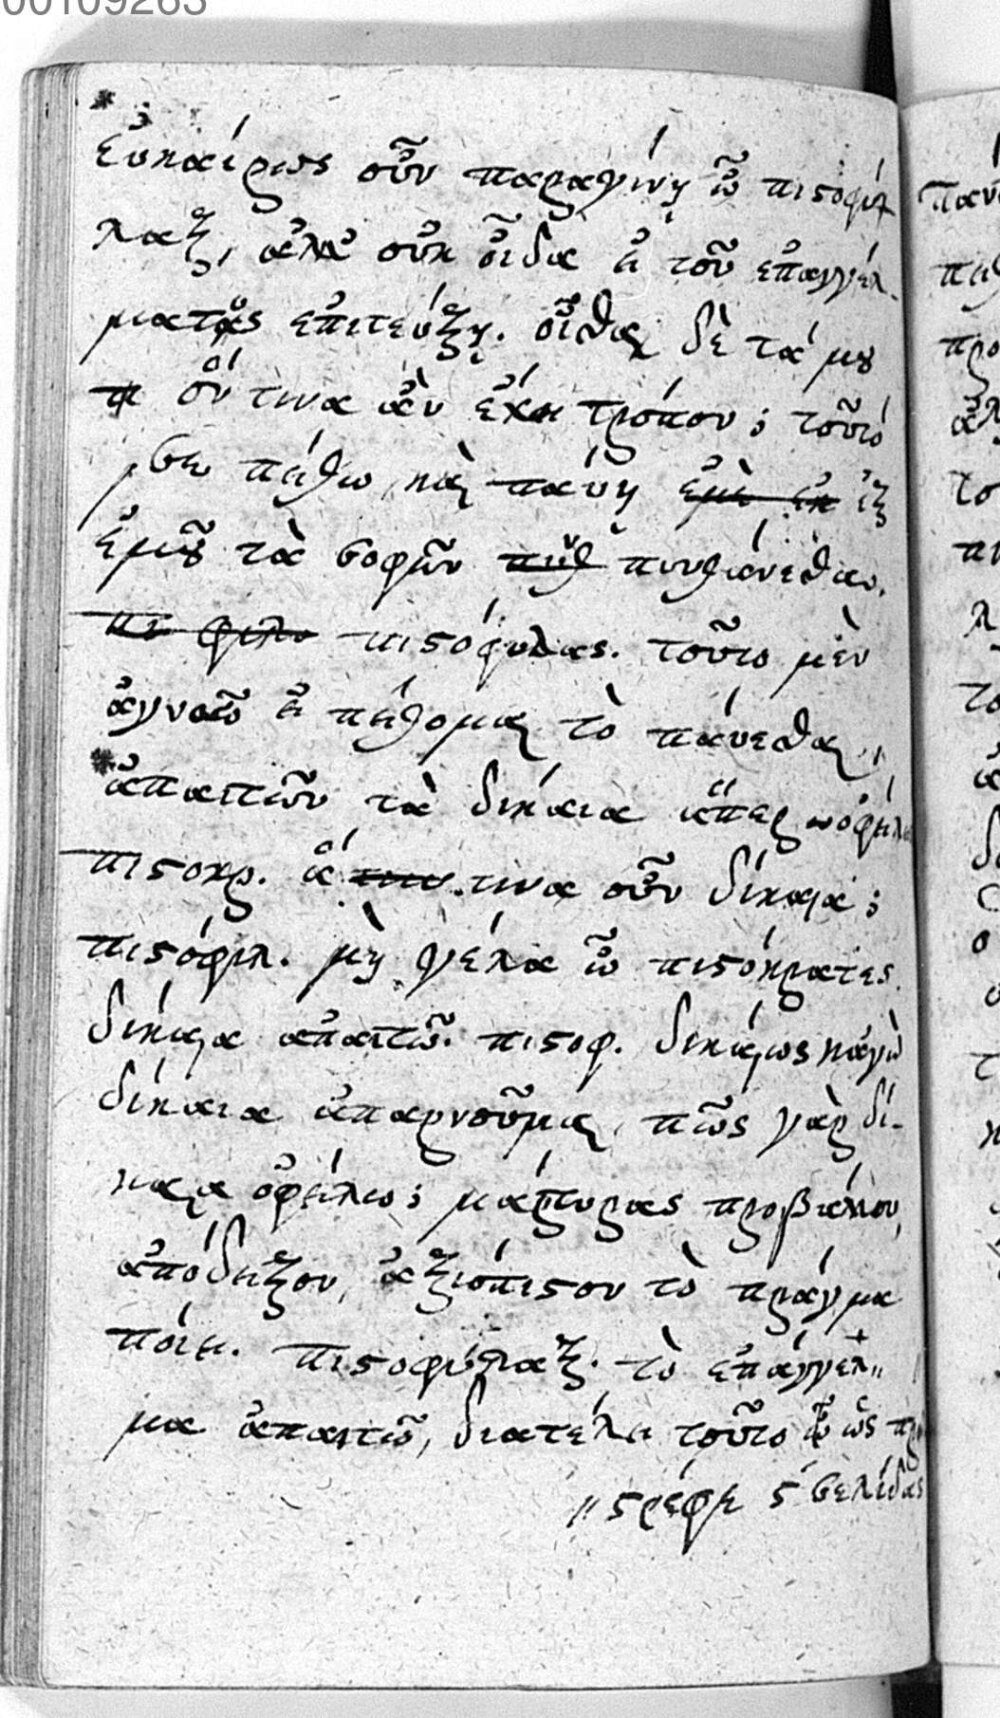 00109263
εὐκαίρως οὖν παραγίνῃ ὦ πιστοφύ
λαξ, ἀλλ' οὐκ οἶδα εἰ τοῦ ἐπαγγέλ-
ματος ἐπιτεύξῃ. οἶσθας δὲ τά μου
ὅν τινα ἂν ἔχῃ τρόπον; τοῦτό
πείθω καὶ πάνυ ἐμὲ ἐκ ἐξ
ἐμοῦ τὰ σοφῶν πυθ πυνθάνεσθαι.
πι φιλο πιστόφυλας. τοῦτο μὲν
ἀγνοῶ εἰ πείθομαι τὸ πάνεσθαι,
ἀπαιτῶν τὰ δίκαια ἅπερ ὀφείλει
πιστοκρ. ἅ τινα οὖν δίκαια;
πιστόφιλ. μὴ γέλα ὦ πιστόκρατες
δίκαια ἀπαιτῶ. πιστοφ. δικαίως κἀγὼ
δίκαια ἀπαρνοῦμαι, πῶς γὰρ δί-
καια ὀφείλω; μάρτυρας προβάλλου,
ἀπόδειξον, ἀξιόπιστον τὸ πρᾶγμα
ποίει. πιστοφύλαξ. τὸ ἐπάγγελ"
μα ἀπαιτῶ, διατέλει τοῦτο ὡς
"στρέφε ϛ σελίδας